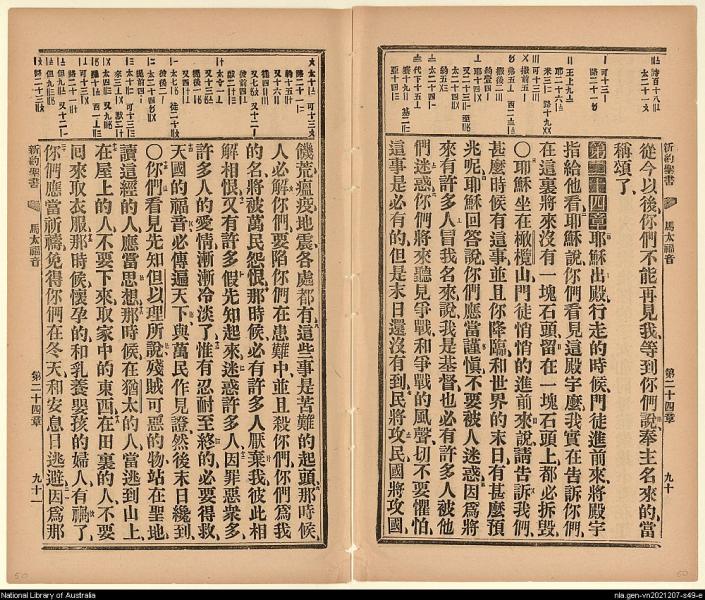 新約聖書
馬太福音
第二十四章
九十
從今以後、你們不能再見我、等到你們說、奉主名來的、當
稱頌了、
第二十四章 耶穌出殿行走的時候、門徒進前來、將殿宇
指給他看、耶穌說、你們看見這殿宇麽、我實在告訴你們、
在這裏將來沒有一塊石頭留在一塊石頭上、都必拆毀、
〇耶穌坐在橄欖山、門徒悄悄的進前來說、請告訴我們、
甚麽時候有這事、並且你降臨和世界的末日、有甚麽預
兆呢、耶穌回答說、你們應當謹慎、不要被人迷惑、因爲將
來有許多人冒我名來說、我是基督、也必有許多人被他
們迷惑、你們將來聽見爭戰、和爭戰的風聲、切不要懼怕、
這事是必有的、但是末日還沒有到、民將攻民、國將攻國、
饑荒瘟疫地震、各處都有、這些事是苦難的起頭、那時候
人必解你們、要陷你們在患難中、並且殺你們、你們爲我
的名、將被萬民怨恨、那時候必有許多人厭棄我、彼此相
解相恨、又有許多假先知起來、迷惑許多人、因罪惡衆多、
許多人的愛情漸漸冷淡了、惟有忍耐至終的、必要得救、
天國的福音、必傳遍天下、與萬民作見證、然後末日纔到、
〇你們看見先知但以理所說、殘賊可惡的物、站在聖地、
讀這經的人應當思想、那時候在猶太的人當逃到山上、
在屋上的人、不要下來取家中的東西、在田裏的人、不要
囘來取衣服、那時候懷孕的和乳養嬰孩的婦人有禍了、
你們應當祈禱、免得你們在冬天和安息日逃避、因爲那
新約聖書
馬太福音
第二十四章
九十一
National Library of Australia
nla.gen-vn2021207-s49-e